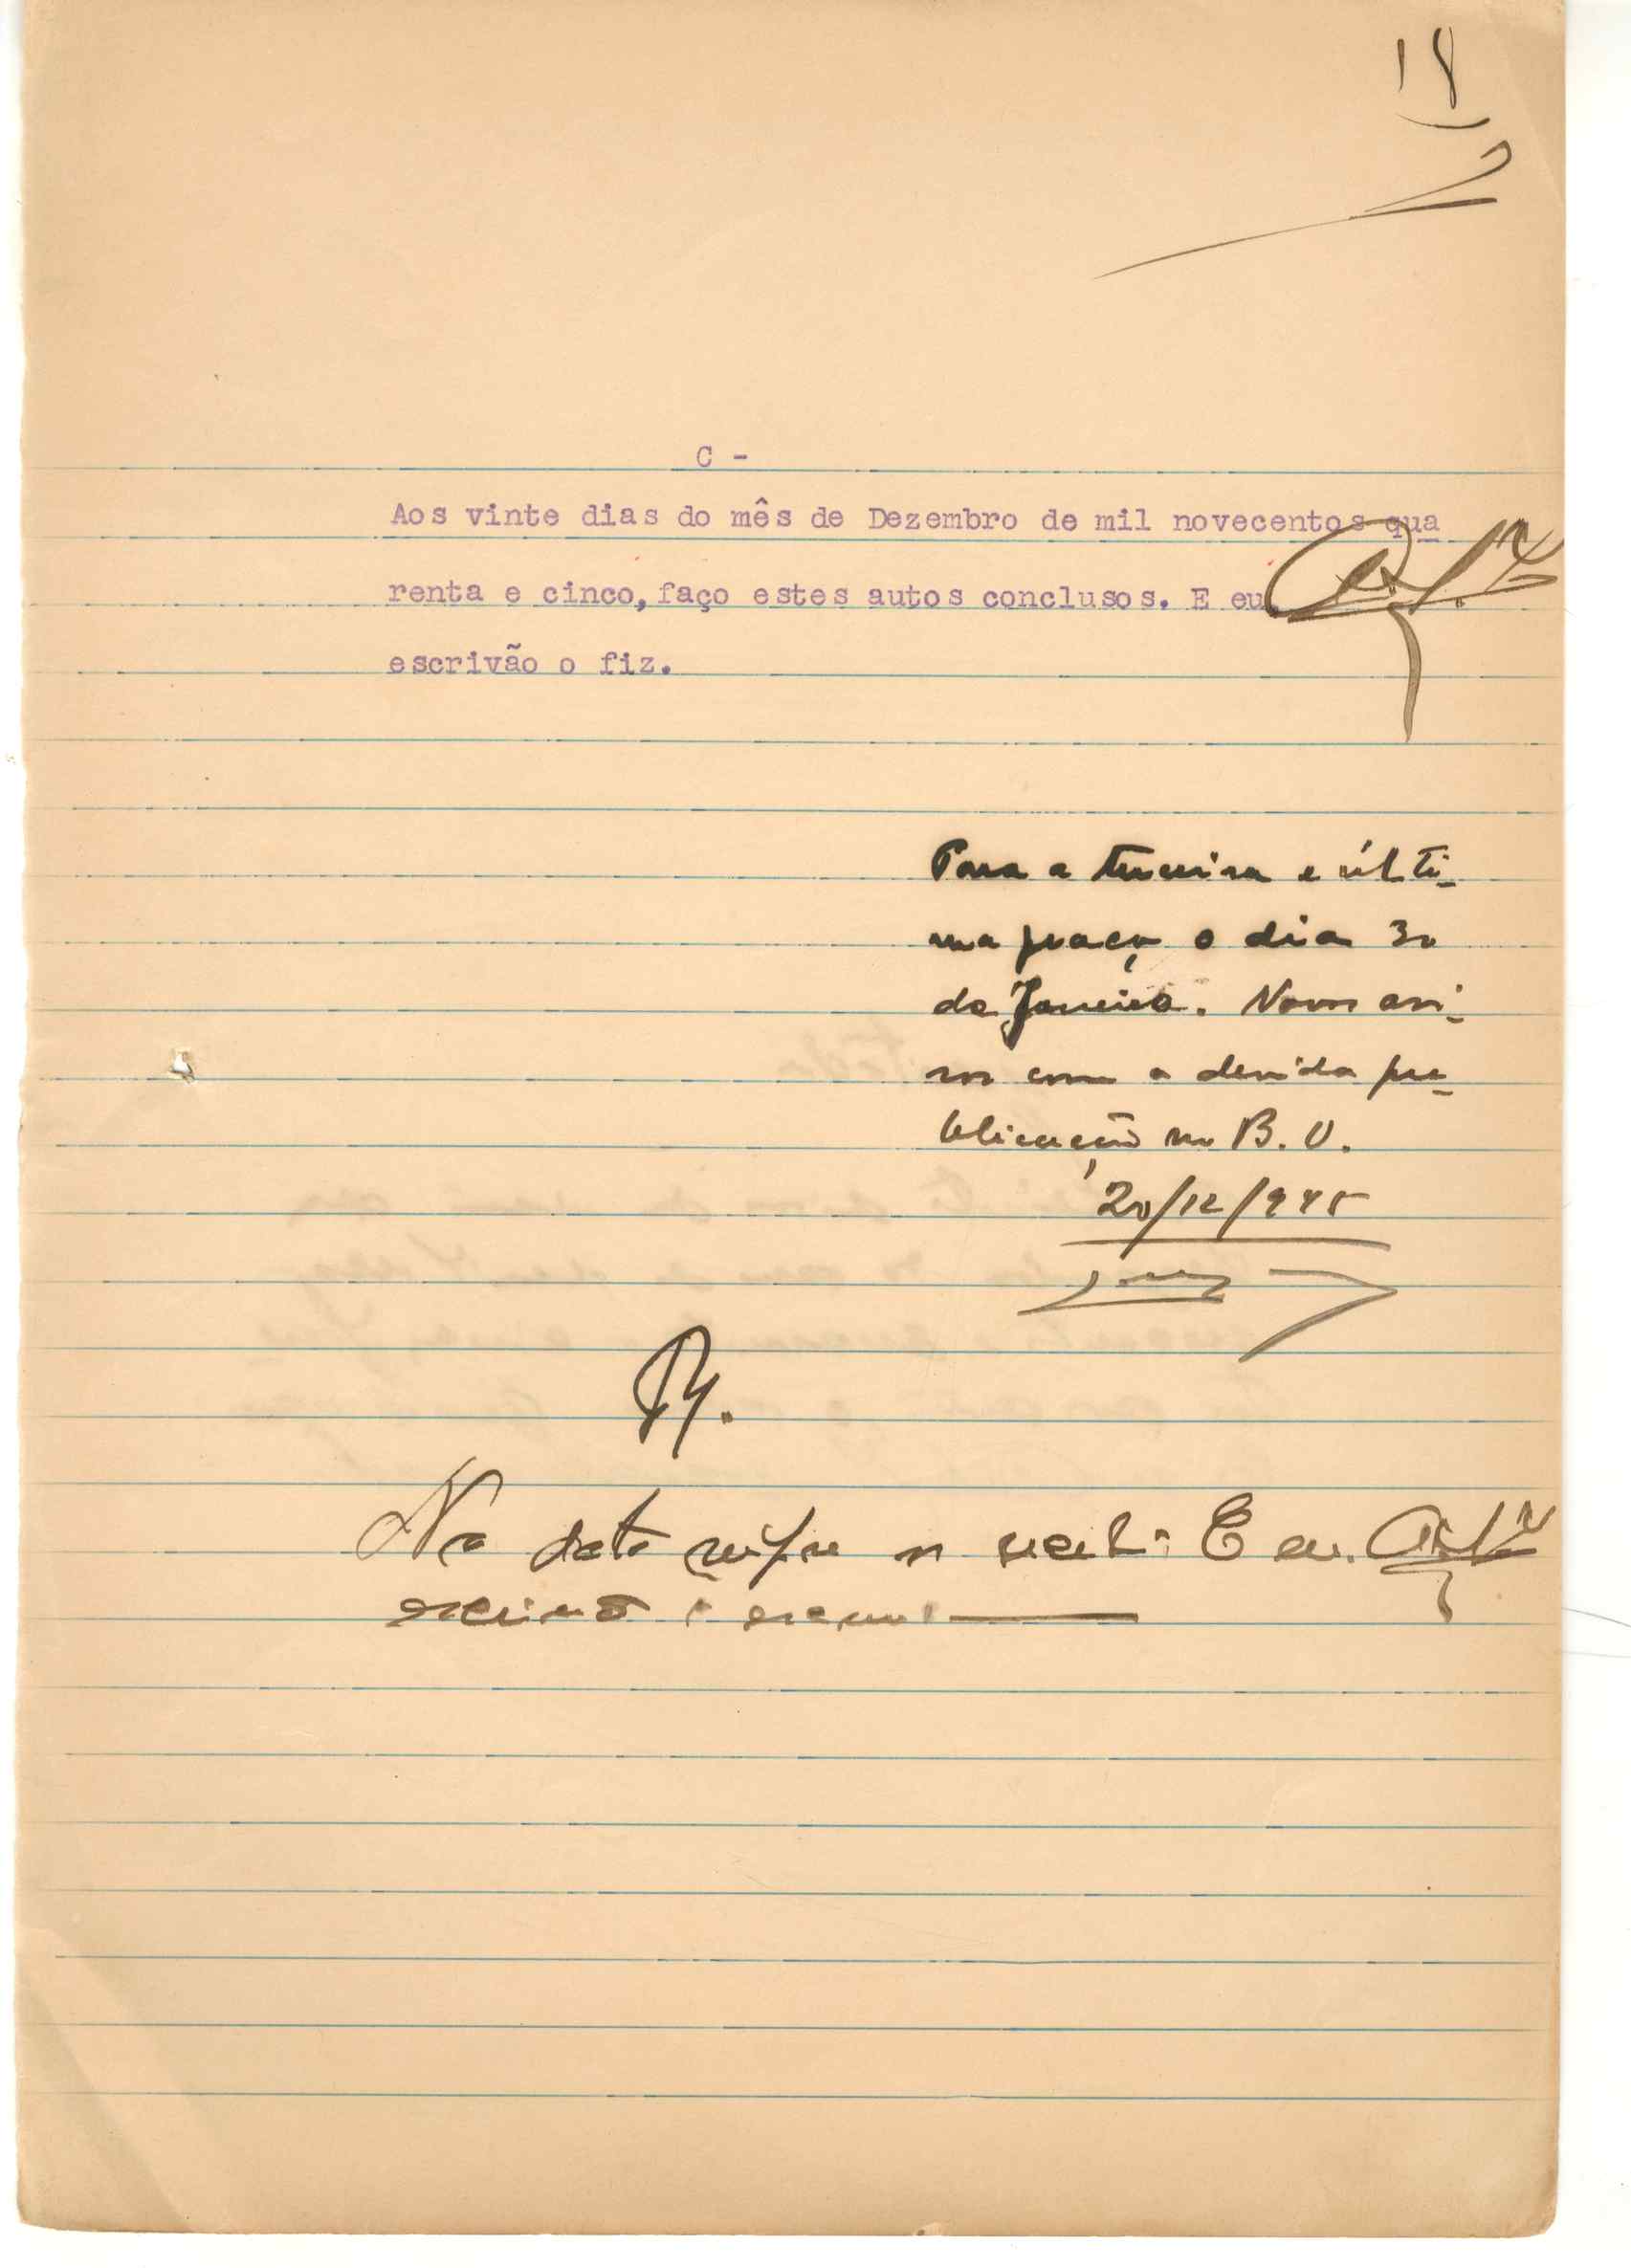 18
C -
Aos vinte dias do mês de Dezembro de mil novecentos qua
renta e cinco, faço estes autos conclusos. E eu,
escrivão o fiz.
Para a terceira e últi-
ma praça o dia 30
de Janeiro. Novos avi-
sos com a devida pu-
blicação no B. O.
20/12/945
Na data supra os recebi. E eu.
escrivão o escrevi